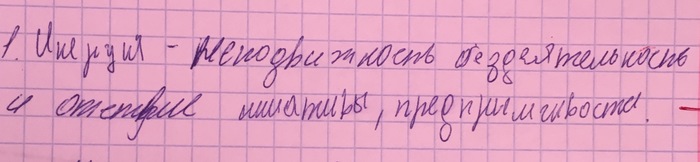 1. Инерция - Неподвижность бездеятельность
и отствие инициативы, предприимчивости.